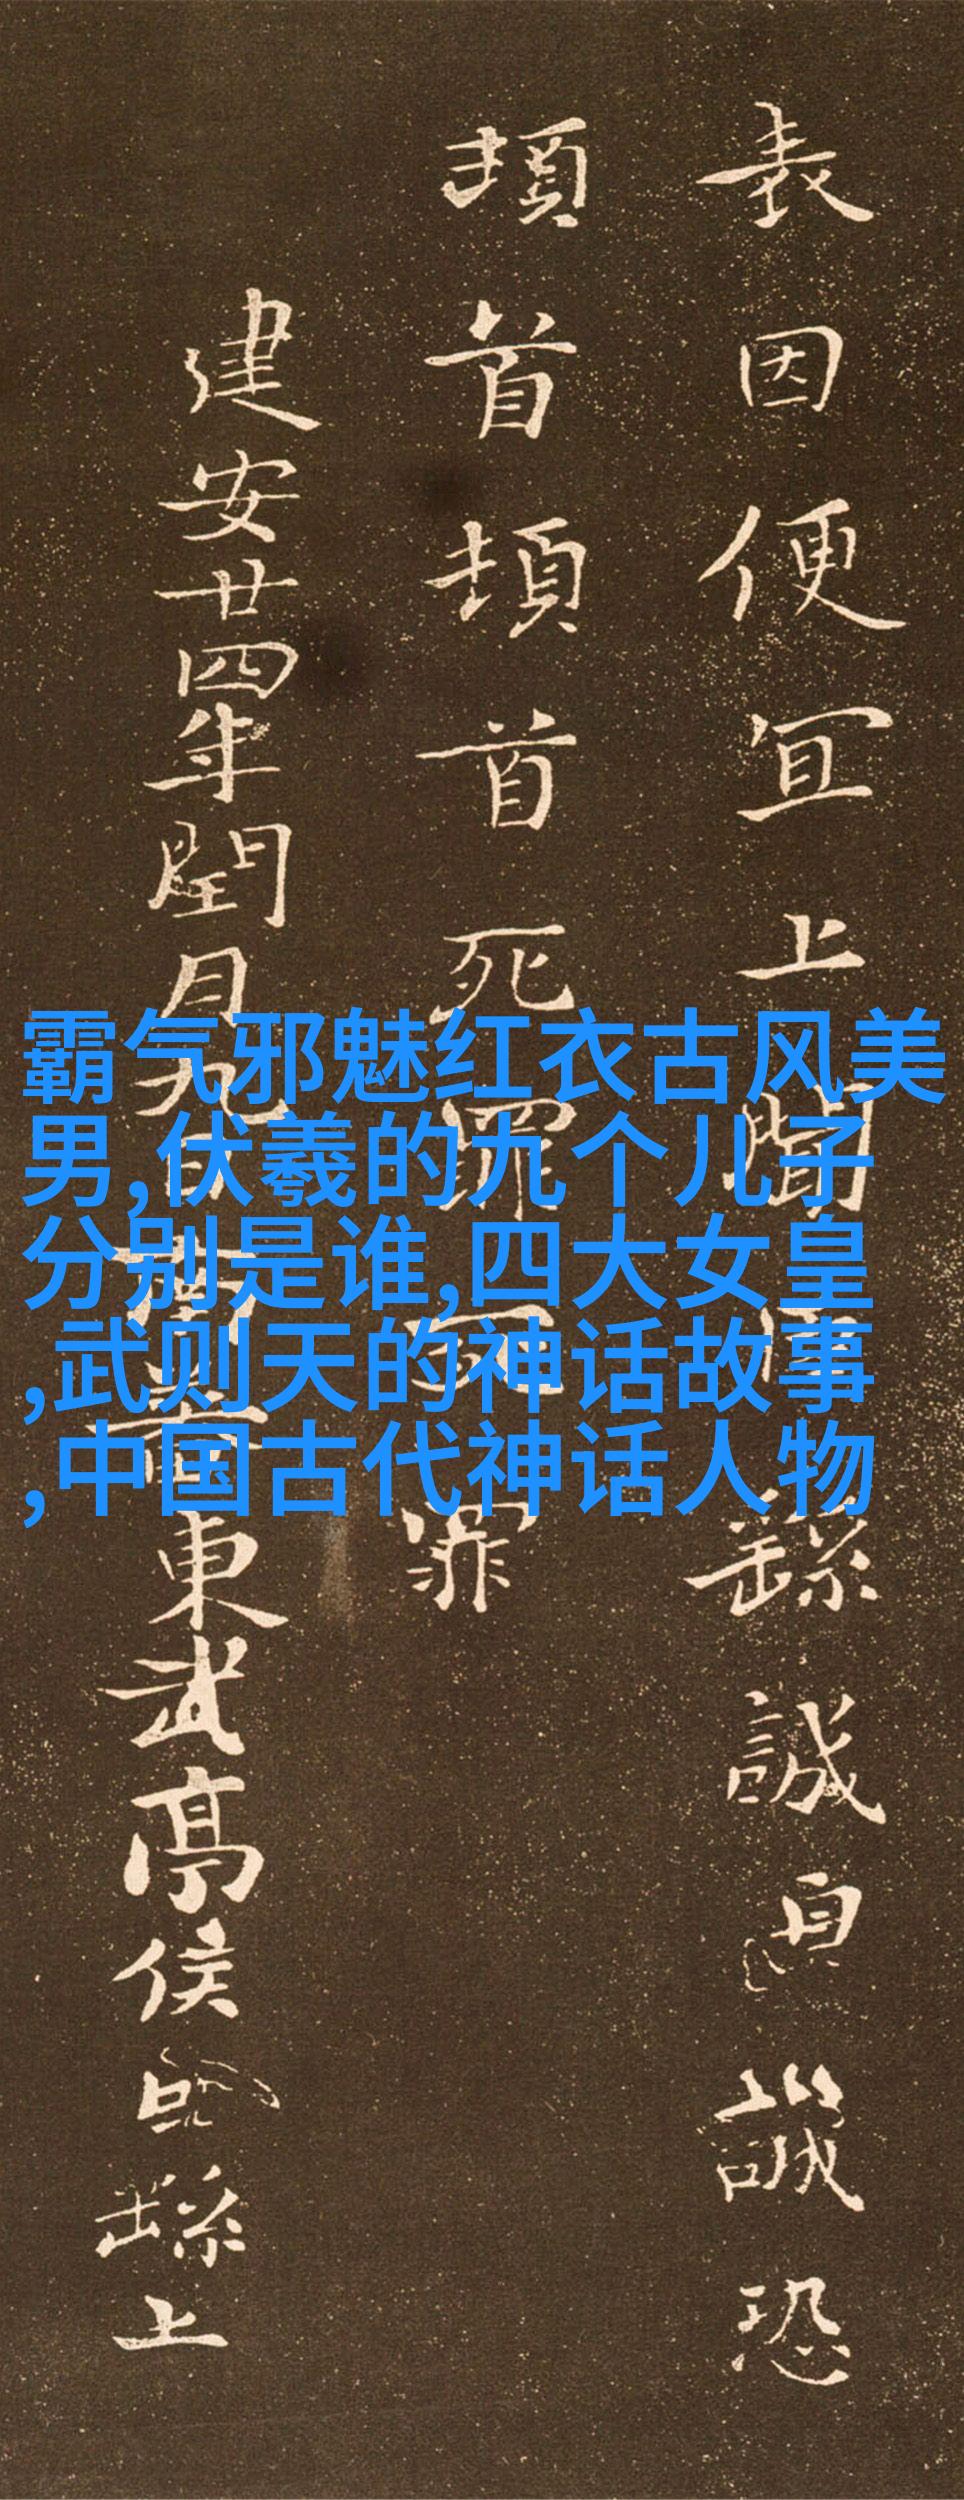 表因便宜上聞臣繇誠皇誠恐
頓首頓首死罪死罪
建安廿四年閏月九日南蕃東武亭侯臣繇上
霸气邪魅红衣古风美
男,伏羲的九个儿子
分别是谁,四大女皇
,武则天的神话故事
,中国古代神话人物